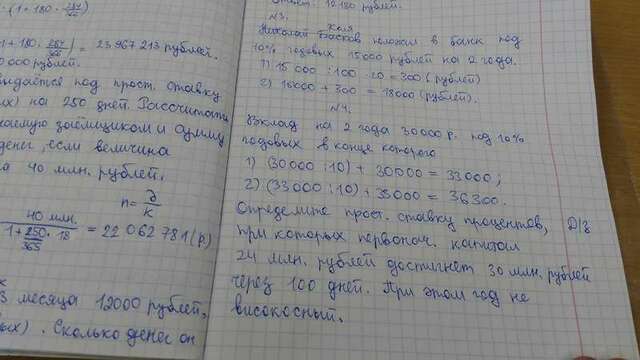 · (1+180 · 287/366)
1+180 · 287/366) = 23 967 213 рублей.
0 000 рублей.
выдается под прост. ставку
ых) на 250 дней. Рассчитати
чаемую заёмщиком и сумму
денег, если величина
на 40 млн. рублей.
n = д/к
40 млн. / 1 + 250/365 · 18 = 22 062 781 (р.)
3 месяца 12000 рублей,
вых). Сколько денег он
Ответ: 12 180 рублей.
№3.
Коля
Николай Басков положил в банк под
10% годовых 15000 рублей на 2 года.
1) 15 000 : 100 · 20 = 300 (рублей)
2) 15000 + 300 = 18000 (рублей).
№4.
Вклад на 2 года 30 000 р. под 10%
годовых в конце которого
1) (30000 : 10) + 30000 = 33000;
2) (33 000 : 10) + 33000 = 36 300.
Определите прост. ставку процентов, Д/з
при которых первонач. капитал
24 млн. рублей достигнет 30 млн. рублей
через 100 дней. При этом год не
високосный.